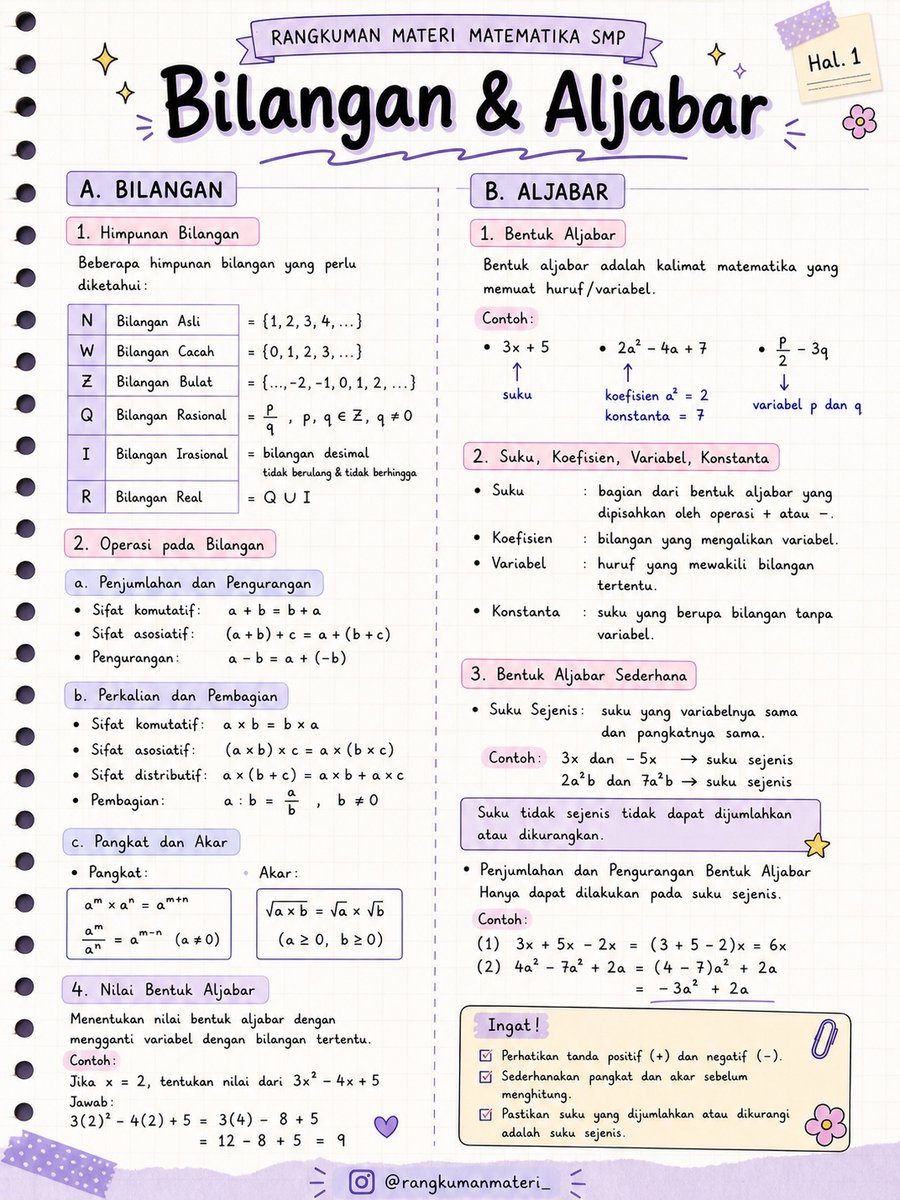 RANGKUMAN MATERI MATEMATIKA SMP
Hal. 1
Bilangan & Aljabar
A. BILANGAN
1. Himpunan Bilangan
Beberapa himpunan bilangan yang perlu
diketahui:
N Bilangan Asli = {1, 2, 3, 4, ...}
W Bilangan Cacah = {0, 1, 2, 3, ...}
Z Bilangan Bulat = {...,-2, -1, 0, 1, 2, ...}
Q Bilangan Rasional = p/q , p, q ∈ Z, q ≠ 0
I Bilangan Irasional = bilangan desimal
tidak berulang & tidak berhingga
R Bilangan Real = Q ∪ I
2. Operasi pada Bilangan
a. Penjumlahan dan Pengurangan
• Sifat komutatif: a + b = b + a
• Sifat asosiatif: (a + b) + c = a + (b + c)
• Pengurangan: a − b = a + (−b)
b. Perkalian dan Pembagian
• Sifat komutatif: a × b = b × a
• Sifat asosiatif: (a × b) × c = a × (b × c)
• Sifat distributif: a × (b + c) = a × b + a × c
• Pembagian: a : b = a/b , b ≠ 0
c. Pangkat dan Akar
• Pangkat: • Akar:
aᵐ × aⁿ = aᵐ⁺ⁿ
aᵐ/aⁿ = aᵐ⁻ⁿ (a ≠ 0)
√(a × b) = √a × √b
(a ≥ 0, b ≥ 0)
4. Nilai Bentuk Aljabar
Menentukan nilai bentuk aljabar dengan
mengganti variabel dengan bilangan tertentu.
Contoh:
Jika x = 2, tentukan nilai dari 3x² − 4x + 5
Jawab:
3(2)² − 4(2) + 5 = 3(4) − 8 + 5
= 12 − 8 + 5 = 9
B. ALJABAR
1. Bentuk Aljabar
Bentuk aljabar adalah kalimat matematika yang
memuat huruf/variabel.
Contoh:
• 3x + 5 • 2a² − 4a + 7 • p/2 − 3q
↑ ↑ ↓
suku koefisien a² = 2 variabel p dan q
konstanta = 7
2. Suku, Koefisien, Variabel, Konstanta
• Suku : bagian dari bentuk aljabar yang
dipisahkan oleh operasi + atau −.
• Koefisien : bilangan yang mengalikan variabel.
• Variabel : huruf yang mewakili bilangan
tertentu.
• Konstanta : suku yang berupa bilangan tanpa
variabel.
3. Bentuk Aljabar Sederhana
• Suku Sejenis: suku yang variabelnya sama
dan pangkatnya sama.
Contoh: 3x dan − 5x → suku sejenis
2a²b dan 7a²b → suku sejenis
Suku tidak sejenis tidak dapat dijumlahkan
atau dikurangkan.
• Penjumlahan dan Pengurangan Bentuk Aljabar
Hanya dapat dilakukan pada suku sejenis.
Contoh:
(1) 3x + 5x − 2x = (3 + 5 − 2)x = 6x
(2) 4a² − 7a² + 2a = (4 − 7)a² + 2a
= − 3a² + 2a
Ingat!
☑ Perhatikan tanda positif (+) dan negatif (−).
☑ Sederhanakan pangkat dan akar sebelum
menghitung.
☑ Pastikan suku yang dijumlahkan atau dikurangi
adalah suku sejenis.
@rangkumanmateri_